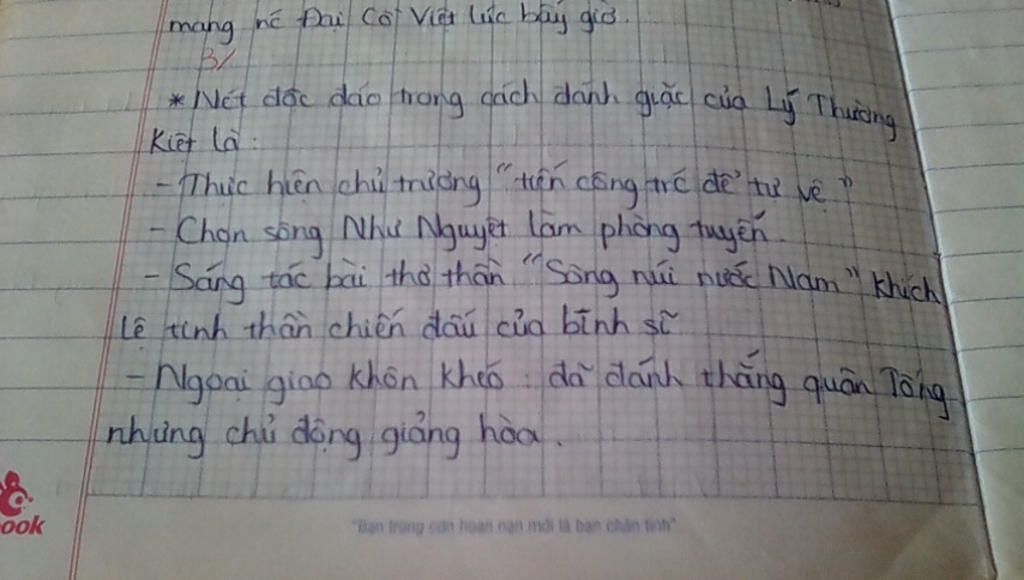 mạng nc Đại Cồ Việt lúc bấy giờ.
3/
* Nét độc đáo trong cách đánh giặc của Lý Thường
Kiệt là:
- Thực hiện chủ trương "tiến công trc để tự vệ"
- Chọn sông Như Nguyệt làm phòng tuyến.
- Sáng tác bài thơ thần "Sông núi nước Nam" khích
lệ tinh thần chiến đấu của binh sĩ
- Ngoại giao khôn khéo: đã đánh thắng quân Tống
nhưng chủ động giảng hòa.
ook
"Bạn trong cơn hoạn nạn mới là bạn chân tình"